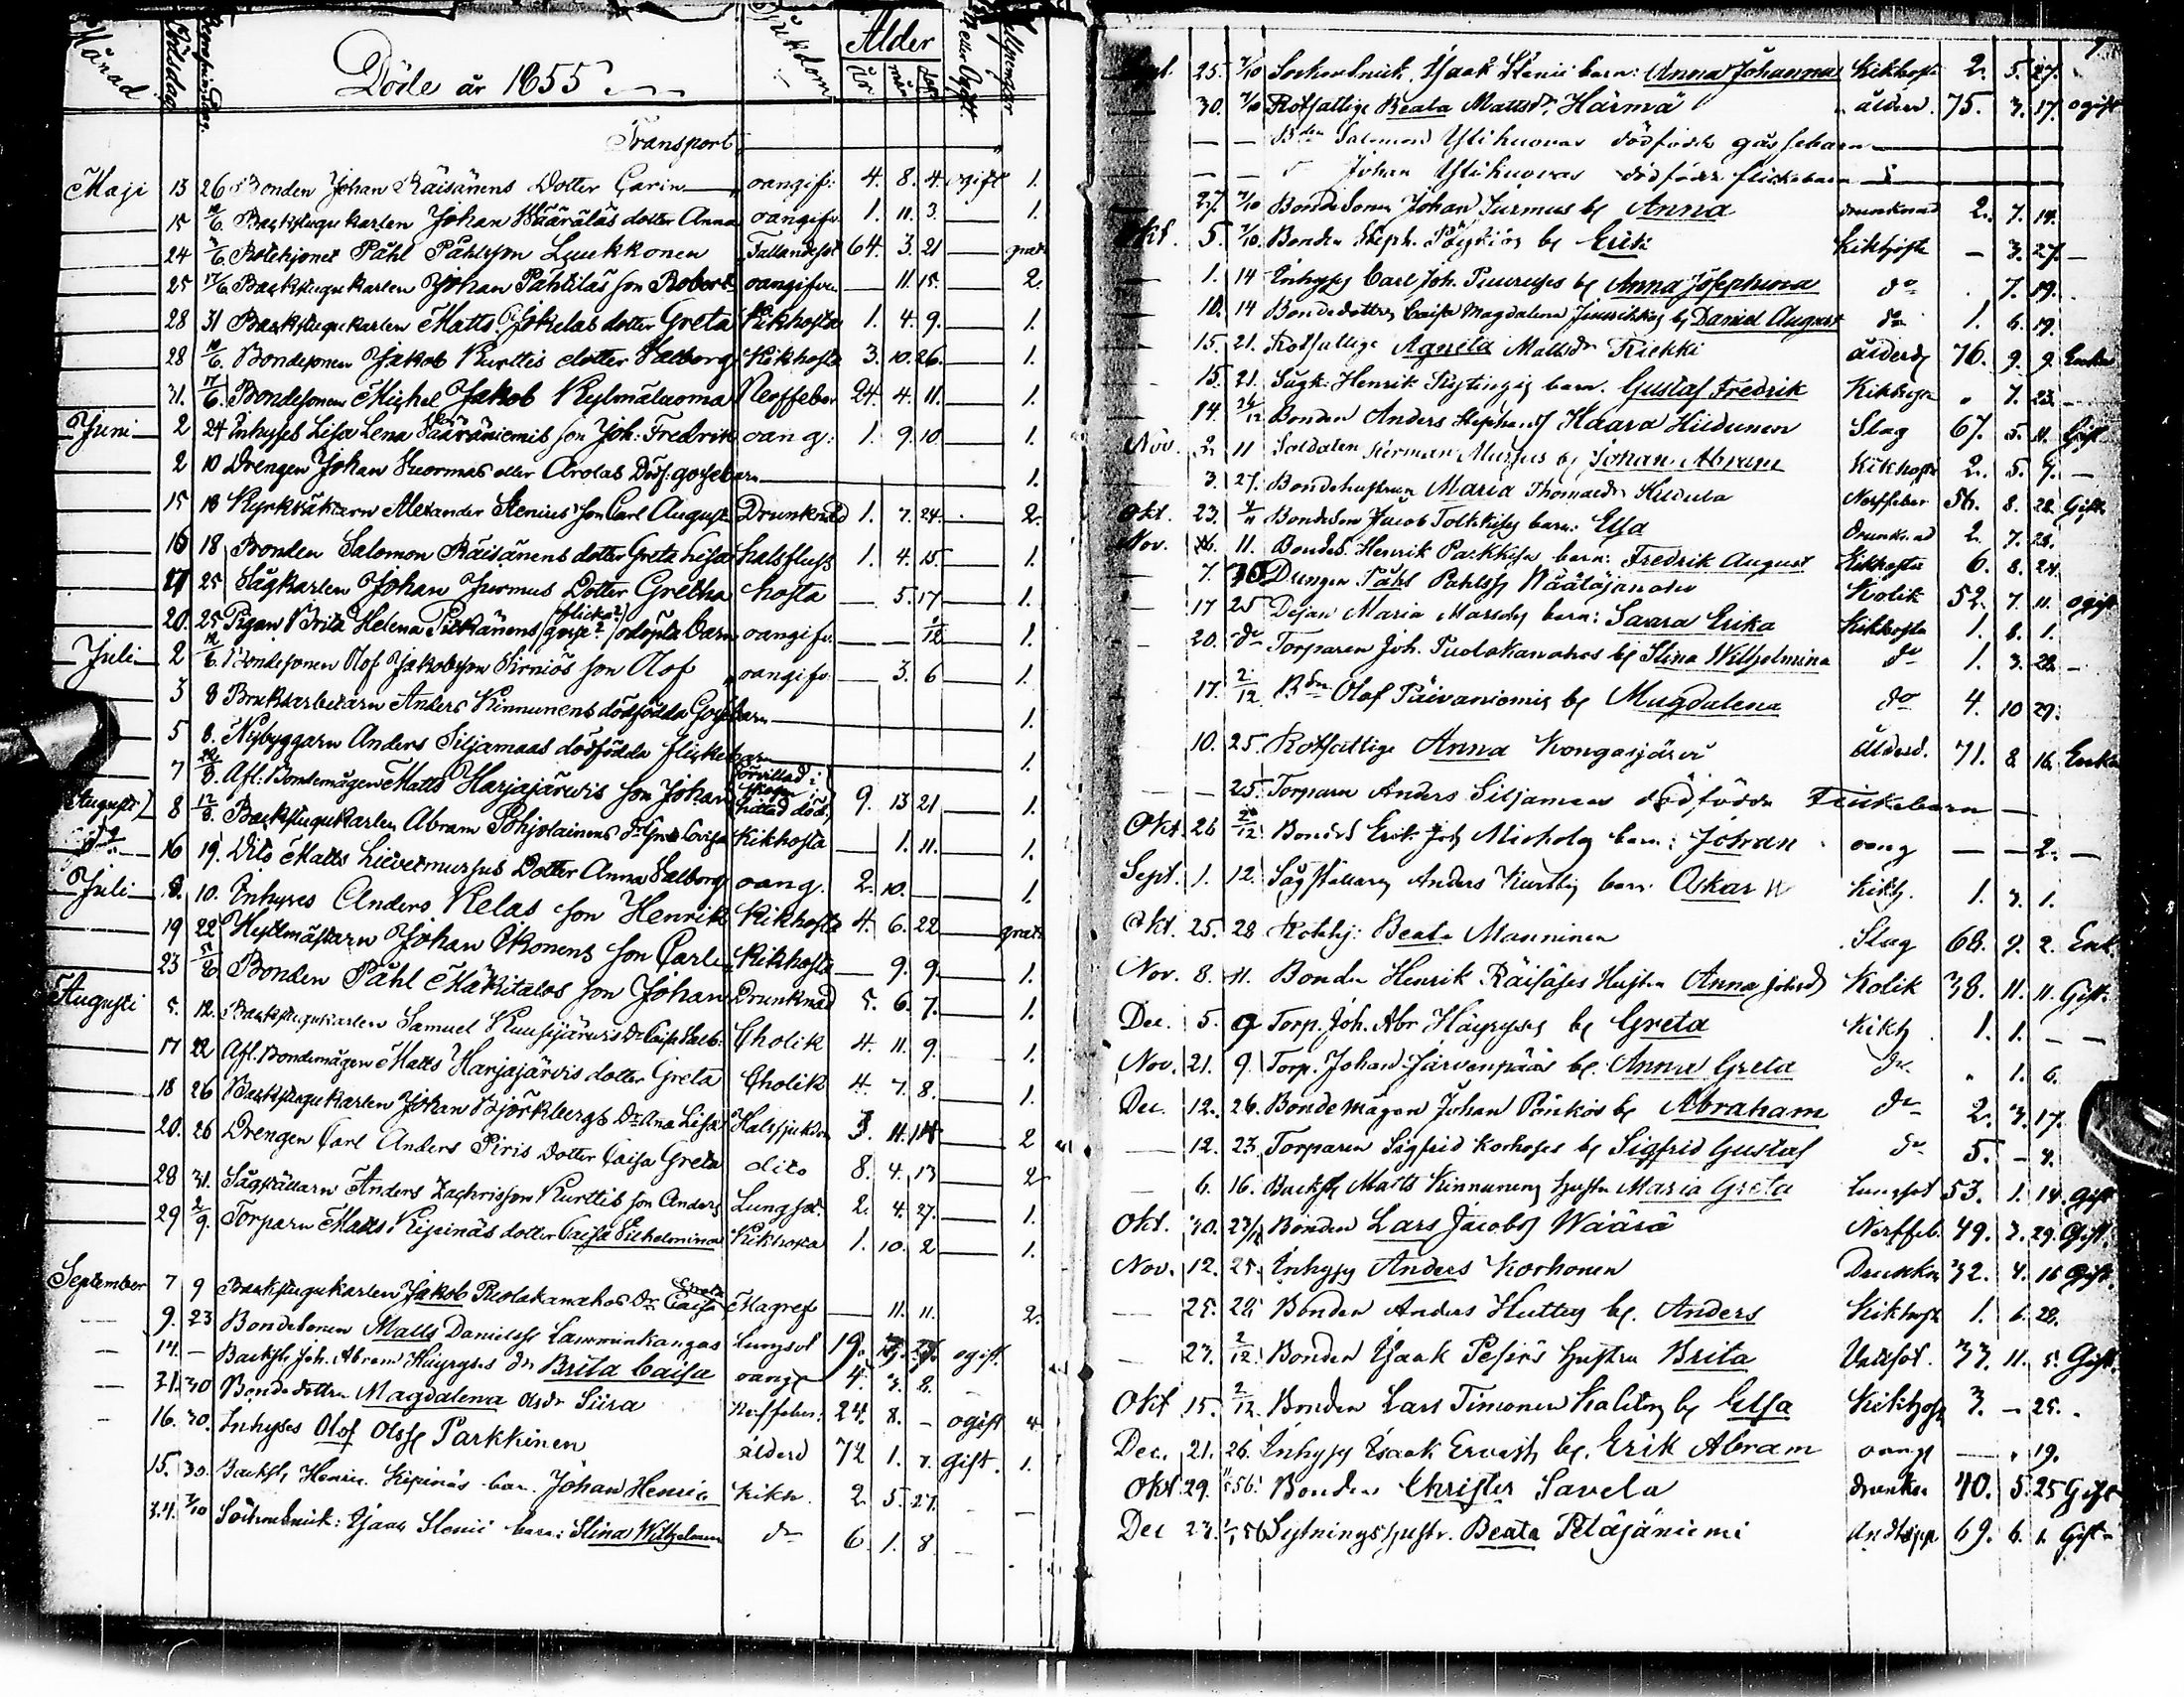 Månad Dödsdag Sjukdom Ålder Gift eller Ogift
Döde år 1855 År mån dag
Transport
Maji 13 26 Bonden Johan Räisänens Dotter Carin oangif: 4. 8. 4. ogift 1.
15 10/6. Backstugukarlen Johan Määräläs dotter Anna oangifv. 1. 11. 3. 1.
24 3/6 Rotehjonet Påhl Påhlsson Luukkonen Fallandesot 64. 3. 21 grat.
25 17/6 Backstugukarlen Johan Pahtilas son Robert oangifven 11. 15. 2.
28 31 Backstugukarlen Matts Jokelas dotter Greta Kikhosta 1. 4. 9. 1.
28 10/6. Bondesonen Jakob Kurttis dotter Walborg Kikhosta 3. 10. 26. 1.
31. 17/6. Bondesonen Michel Jakob Kylmälaoma Nerffeber 24. 4. 11. 1.
Juni 2 24 Inhyses Lisa Lena Säräniemis son Joh: Fredrik oang: 1. 9. 10. 1.
2 10 Drengen Johan Vuormas eller Arolas Dödf: gossebarn 1.
15 18 Kyrkväktarn Alexander Stenius' son Carl August Drunknad 1. 7. 24. 2.
16 18 Bonden Salomon Räisänens dotter Greta Lisa halsfluss 1. 4. 15. 1.
17 25 Sågkarlen Johan Jurmus Dotter Gretha hosta 5. 17 1.
20. 25 Pigan Brita Helena Pitkänens (gosse? flicka?) odöpta barn oangifv. 1/12 1.
Juli 2 12/6. Bondesonen Olof Jakobsson Sirniös son Olof oangifv. 3. 6 1.
3 8 Bruksarbetarn Anders Kinnunens dödfödda Gossebarn 1.
5 8. Nybyggarn Anders Siljamaas dödfödda flickebarn 1.
7 12/8. Afl: Bondemågen Matts Harjajärwis son Johan förvillad i skogen hittad död. 9. 13 21 1.
(Augusti) 8 12/8. Backstugukarlen Abram Pohjolainens Dr Greta Lovisa Kikhosta 1. 11. 1.
do 16 19. Dito Matts Lievetmursus Dotter Anna Walborg oang. 2. 10. 1.
Juli 8. 10. Inhyses Anders Kelas son Henrik Kikhosta 4. 6. 22 grat.
19 22 Hyttmästarn Johan Okonens son Carl Kikhosta 9. 9. 1.
23 5/8 Bonden Påhl Mäkitalos son Johan Drunknad 5. 6. 7. 1.
Augusti 5. 12. Backstugukarlen Samuel Kuusijärwis Dr Caisa Walb: Cholik 4. 11. 9. 1.
17 22 Afl. Bondemågen Matts Harjajärvis dotter Greta Cholik 4. 7. 8. 1.
18 26 Backstugukarlen Johan Björkbergs Dr Ana Lisa Halssjukdom 3. 11. 14 2
20. 26 Drengen Carl Anders Piris Dotter Caisa Greta dito 8. 4. 13 2
28 31. Sågställarn Anders Zachrisson Kurttis son Anders Lungsot. 2. 4. 27. 1.
29 2/9. Torparn Matts Kipinäs dotter Caisa Wilhelmina Kikhosta 1. 10. 2 1.
September 7 9 Backstugukarlen Jakob Puolakanahos Dr Caisa Greta Magref 11. 11. 2.
9. 23 Bondesonen Matts Danielss. Lamminkangas Lungsot 19. ogift
14. – Backst. Joh. Abram Häyrynes Dr Brita Caisa oangf 4. 3. 8.
21. 30 Bondedottren Magdalena Olsdr Siira Nerffeber: 24. 8. – ogift 4.
16. 30. Inhyses Olof Olss. Parkkinen ålderd 72 1. 7. Gift. 1.
15. 30. Backst. Henric Kipinäs barn Johan Henric Kikh. 2. 5. 27.
24. 7/10 Sockneskredd: Isaac Stenii barn: Stina Wilhelmina do 6. 1. 8.
Sept. 25. 7/10 Isaak Stenii barn: Anna Johanna Kikhosta 2. 5. 27.
30. 7/10 Rotfattige Beata Mattsdr Härmä ålderd. 75. 3. 17. ogift
– – Bden Salomon Ylikuovas dödfödde gossebarn
– – do Johan Ylikuovas dödfödde flickebarn
27. 7/10 Bondesonen Johan Jurmus br Anna drunknad 2. 7. 14.
Okt. 5. 7/10 Bonden Steph. br Erik Kikhosta – 3. 27. –
1. 14 Inhyses Carl Joh. br Anna Josephina do . 7. 19.
10. 14 Bondedottren Caisa Magdalena br Daniel August do 1. 6. 19.
15. 21. Rotfattige Agneta Mattsdr Riekki ålderd 76. 9. 9. Enka
15. 21. Sågk. Henrik barn. Gustaf Fredrik Kikhosta . 7. 23.
14. Bonden Anders Stephanss Haara Hiidunen Slag 67. 5. 11. Gift
Nov. 2. 11 Soldaten Herman Mursus br Johan Abram Kikhosta 2. 5. 9. –
3. 27. Bondehustrun Maria Thomasdr Kiidula Nerffeber 56. 8. 28. Gift
Okt. 23. Bondeson Jacob Tolkkis barn: Elsa drunknad 2. 7. 28.
Nov. 11. Bondes. Henrik Parkkises barn: Fredrik August Kikhosta 6. 8. 24.
7. 30 Drengen Påhl Pahlss Näätäjänaho Kolik 52. 7. 11. ogift
17 25 Maria barn: Saara Erika Kikhosta 1. 8. 1.
20. do Torparen Joh. Puolakanahos br Stina Wilhelmina do 1. 3. 28. –
17. 2/12 Bdn Olof Päivaniemis br Magdalena do 4. 10 29.
10. 25. Rotfattige Anna Kongasjärvi ålderd. 71. 8. 16. Enka
– – 25. Torparn Anders Siljamaas dödfödde Flickebarn
Okt. 26 Bonden Erik Joh Mioholas barn: Johan oang – – 2. –
Sept. 1. 12. Sågställarn Anders Kurttis barn Oskar W Kikh. 1. 3. 1.
Okt. 25. 28 Rotehj: Beata Manninen Slag 68. 9. 2. Enk.
Nov. 8. 11. Bonden Henrik Räisäses Hustru Anna Johsdr Kolik 38. 11. 11. Gift.
Dec. 5. 9 Torp. Joh. Abr. Häyryses br Greta Kikh 1. 1. – –
Nov. 21. 9. Torp. Johan Järvenpääs br. Anna Greta do . 1. 6.
Dec. 12. 26. Bondemågen Johan Pönkös br Abraham do 2. 3. 17.
12. 23. Torparen Sigfrid Korhoses br Sigfrid Gustaf do 5. – 4.
6. 16. Backst. Matts Kinnunens hustru Maria Greta Lungsot 53. 1. 14. Gift
Okt. 30. Bonden Lars Jacobs Wäärä Nerffeb. 49. 2. 29. Gift.
Nov. 12. 25. Inhyses Anders Korhonen Drunkn 32. 4. 16 Gift.
25. 29. Bonden Anders Huttus br. Anders Kikhosta 1. 6. 28.
23. 2/12. Bonden Isaak Pesiös hustru Brita Vattsot. 33. 11. 5. Gift
Okt 15. 2/12. Bonden Lars Timonen br Elsa Kikhosta 3. – 25.
Dec. 21. 26. Inhyses Isaak Ervasti br. Erik Abram oangf – . 19.
Okt 29. Bonden Christer Savela drunkn 40. 5. 25 Gift
Dec 23. Sytningshustr. Beata Petäjäniemi 69. 6. 1. Gift